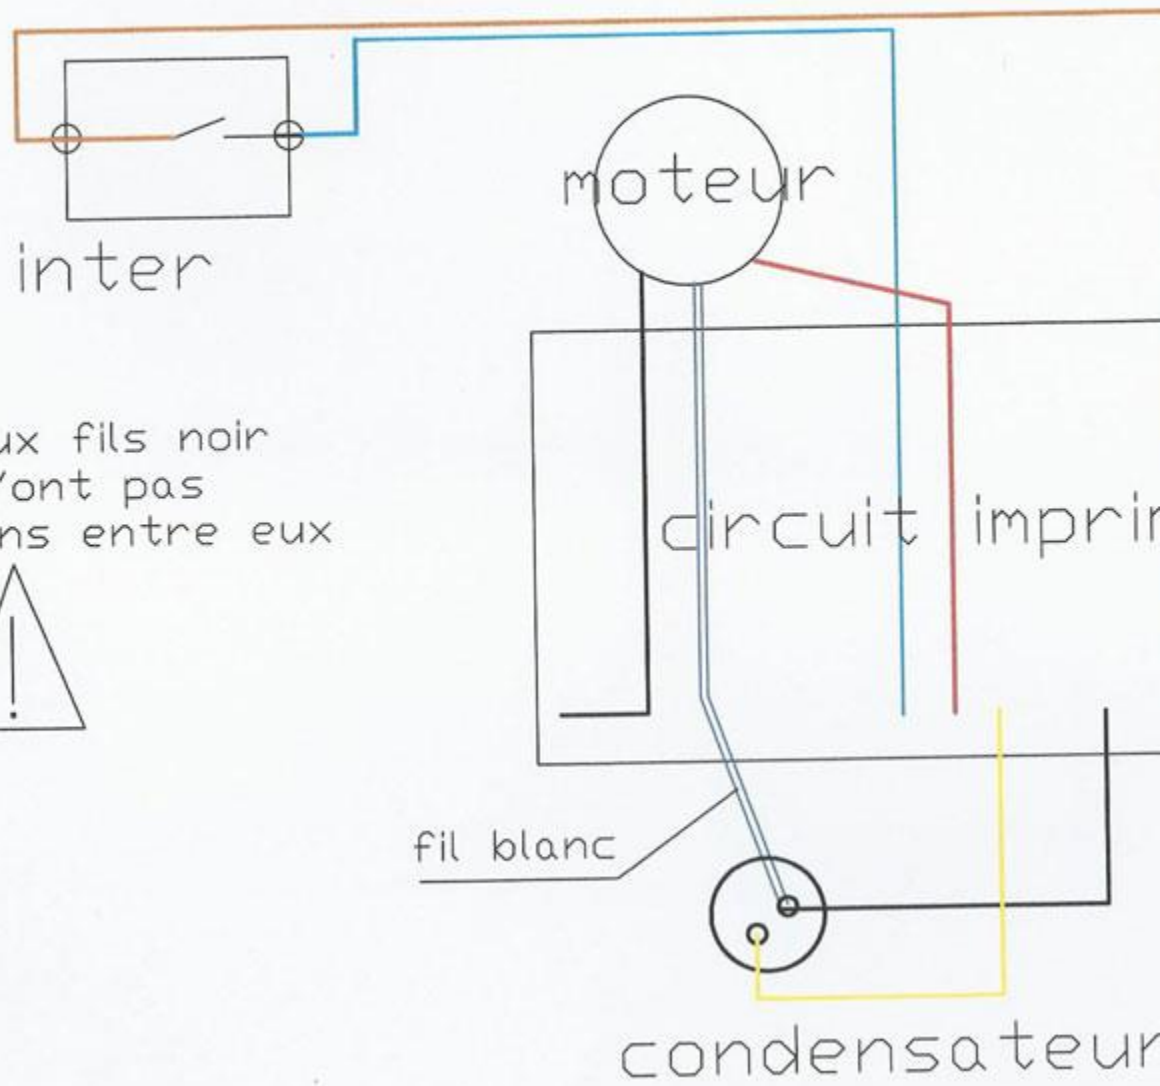 moteur
inter
ux fils noir
ont pas
ns entre eux
circuit imprim
fil blanc
condensateur